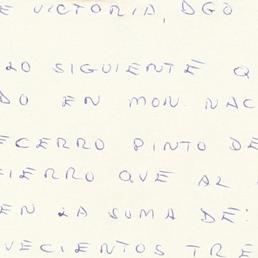 E VICTORIA, DGO
LO SIGUIENTE Q
DO EN MON. NAC
ECERRO PINTO DE
FIERRO QUE AL
EN LA SUMA DE:
VECIENTOS TRE